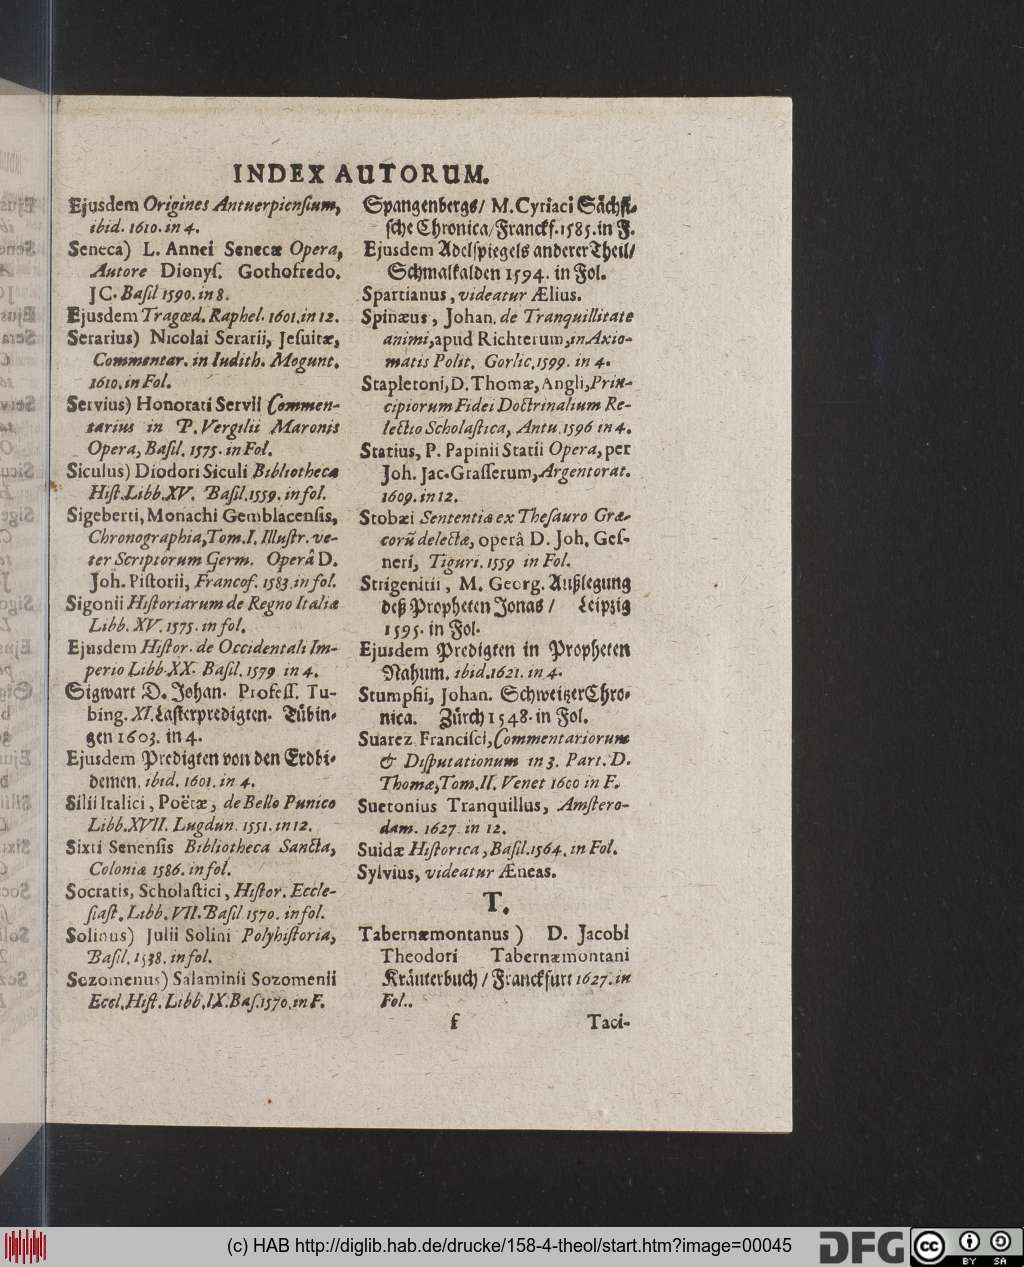 INDEX AUTORUM.
Ejusdem Origines Antuerpienſium,
ibid. 1610. in 4.
Seneca) L. Annei Senecæ Opera,
Autore Dionyſ. Gothofredo.
JC. Baſil 1590. in 8.
Ejusdem Tragœd. Raphel. 1601. in 12.
Serarius) Nicolai Serarii, Jeſuitæ,
Commentar. in Iudith. Mogunt.
1610. in Fol.
Servius) Honorati Servii Commen-
tarius in P. Vergilii Maronis
Opera, Baſil. 1575. in Fol.
Siculus) Diodori Siculi Bibliotheca
Hiſt. Libb. XV. Baſil. 1559. in fol.
Sigeberti, Monachi Gemblacenſis,
Chronographia, Tom. I. Illuſtr. ve-
ter Scriptorum Germ. Operâ D.
Joh. Piſtorii, Francof. 1583. in fol.
Sigonii Hiſtoriarum de Regno Italiæ
Libb. XV. 1575. in fol.
Ejusdem Hiſtor. de Occidentali Im-
perio Libb. XX. Baſil. 1579 in 4.
Sigwart D. Johan. Profeſſ. Tu-
bing. XI. Laſterpredigten. Tübin-
gen 1603. in 4.
Ejusdem Predigten von den Erdbi-
demen. ibid. 1601. in 4.
Silii Italici, Poëtæ, de Bello Punico
Libb. XVII. Lugdun. 1551. in 12.
Sixti Senenſis Bibliotheca Sancta,
Coloniæ 1586. in fol.
Socratis, Scholaſtici, Hiſtor. Eccle-
ſiaſt. Libb. VII. Baſil 1570. in fol.
Solinus) Julii Solini Polyhiſtoria,
Baſil. 1538. in fol.
Sozomenus) Salaminii Sozomenii
Eccl. Hiſt. Libb. IX. Baſ. 1570. in F.
Spangenbergs/ M. Cyriaci Sächſi-
ſche Chronica/ Franckf. 1585. in F.
Ejusdem Adelſpiegels anderer Theil/
Schmalkalden 1594. in Fol.
Spartianus, videatur Ælius.
Spinæus, Johan. de Tranquillitate
animi, apud Richterum, in Axio-
matis Polit. Gorlic. 1599. in 4.
Stapletoni, D. Thomæ, Angli, Prin-
cipiorum Fidei Doctrinalium Re-
lectio Scholaſtica, Antu. 1596 in 4.
Statius, P. Papinii Statii Opera, per
Joh. Jac. Graſſerum, Argentorat.
1609. in 12.
Stobæi Sententiæ ex Theſauro Græ-
corũ delectæ, operâ D. Joh. Geſ-
neri, Tiguri. 1559 in Fol.
Strigenitii, M. Georg. Außlegung
deß Propheten Jonas / Leipzig
1595. in Fol.
Ejusdem Predigten in Propheten
Nahum. ibid. 1621. in 4.
Stumpfii, Johan. Schweitzer Chro-
nica. Zürch 1548. in Fol.
Suarez Franciſci, Commentariorum
& Diſputationum in 3. Part. D.
Thomæ, Tom. II. Venet 1600 in F.
Suetonius Tranquillus, Amſtero-
dam. 1627. in 12.
Suidæ Hiſtorica, Baſil. 1564. in Fol.
Sylvius, videatur Æneas.
T.
Tabernæmontanus) D. Jacobi
Theodori Tabernæmontani
Kräuterbuch / Franckfurt 1627. in
Fol..
f Taci-
(c) HAB http://diglib.hab.de/drucke/158-4-theol/start.htm?image=00045
DFG
cc BY SA